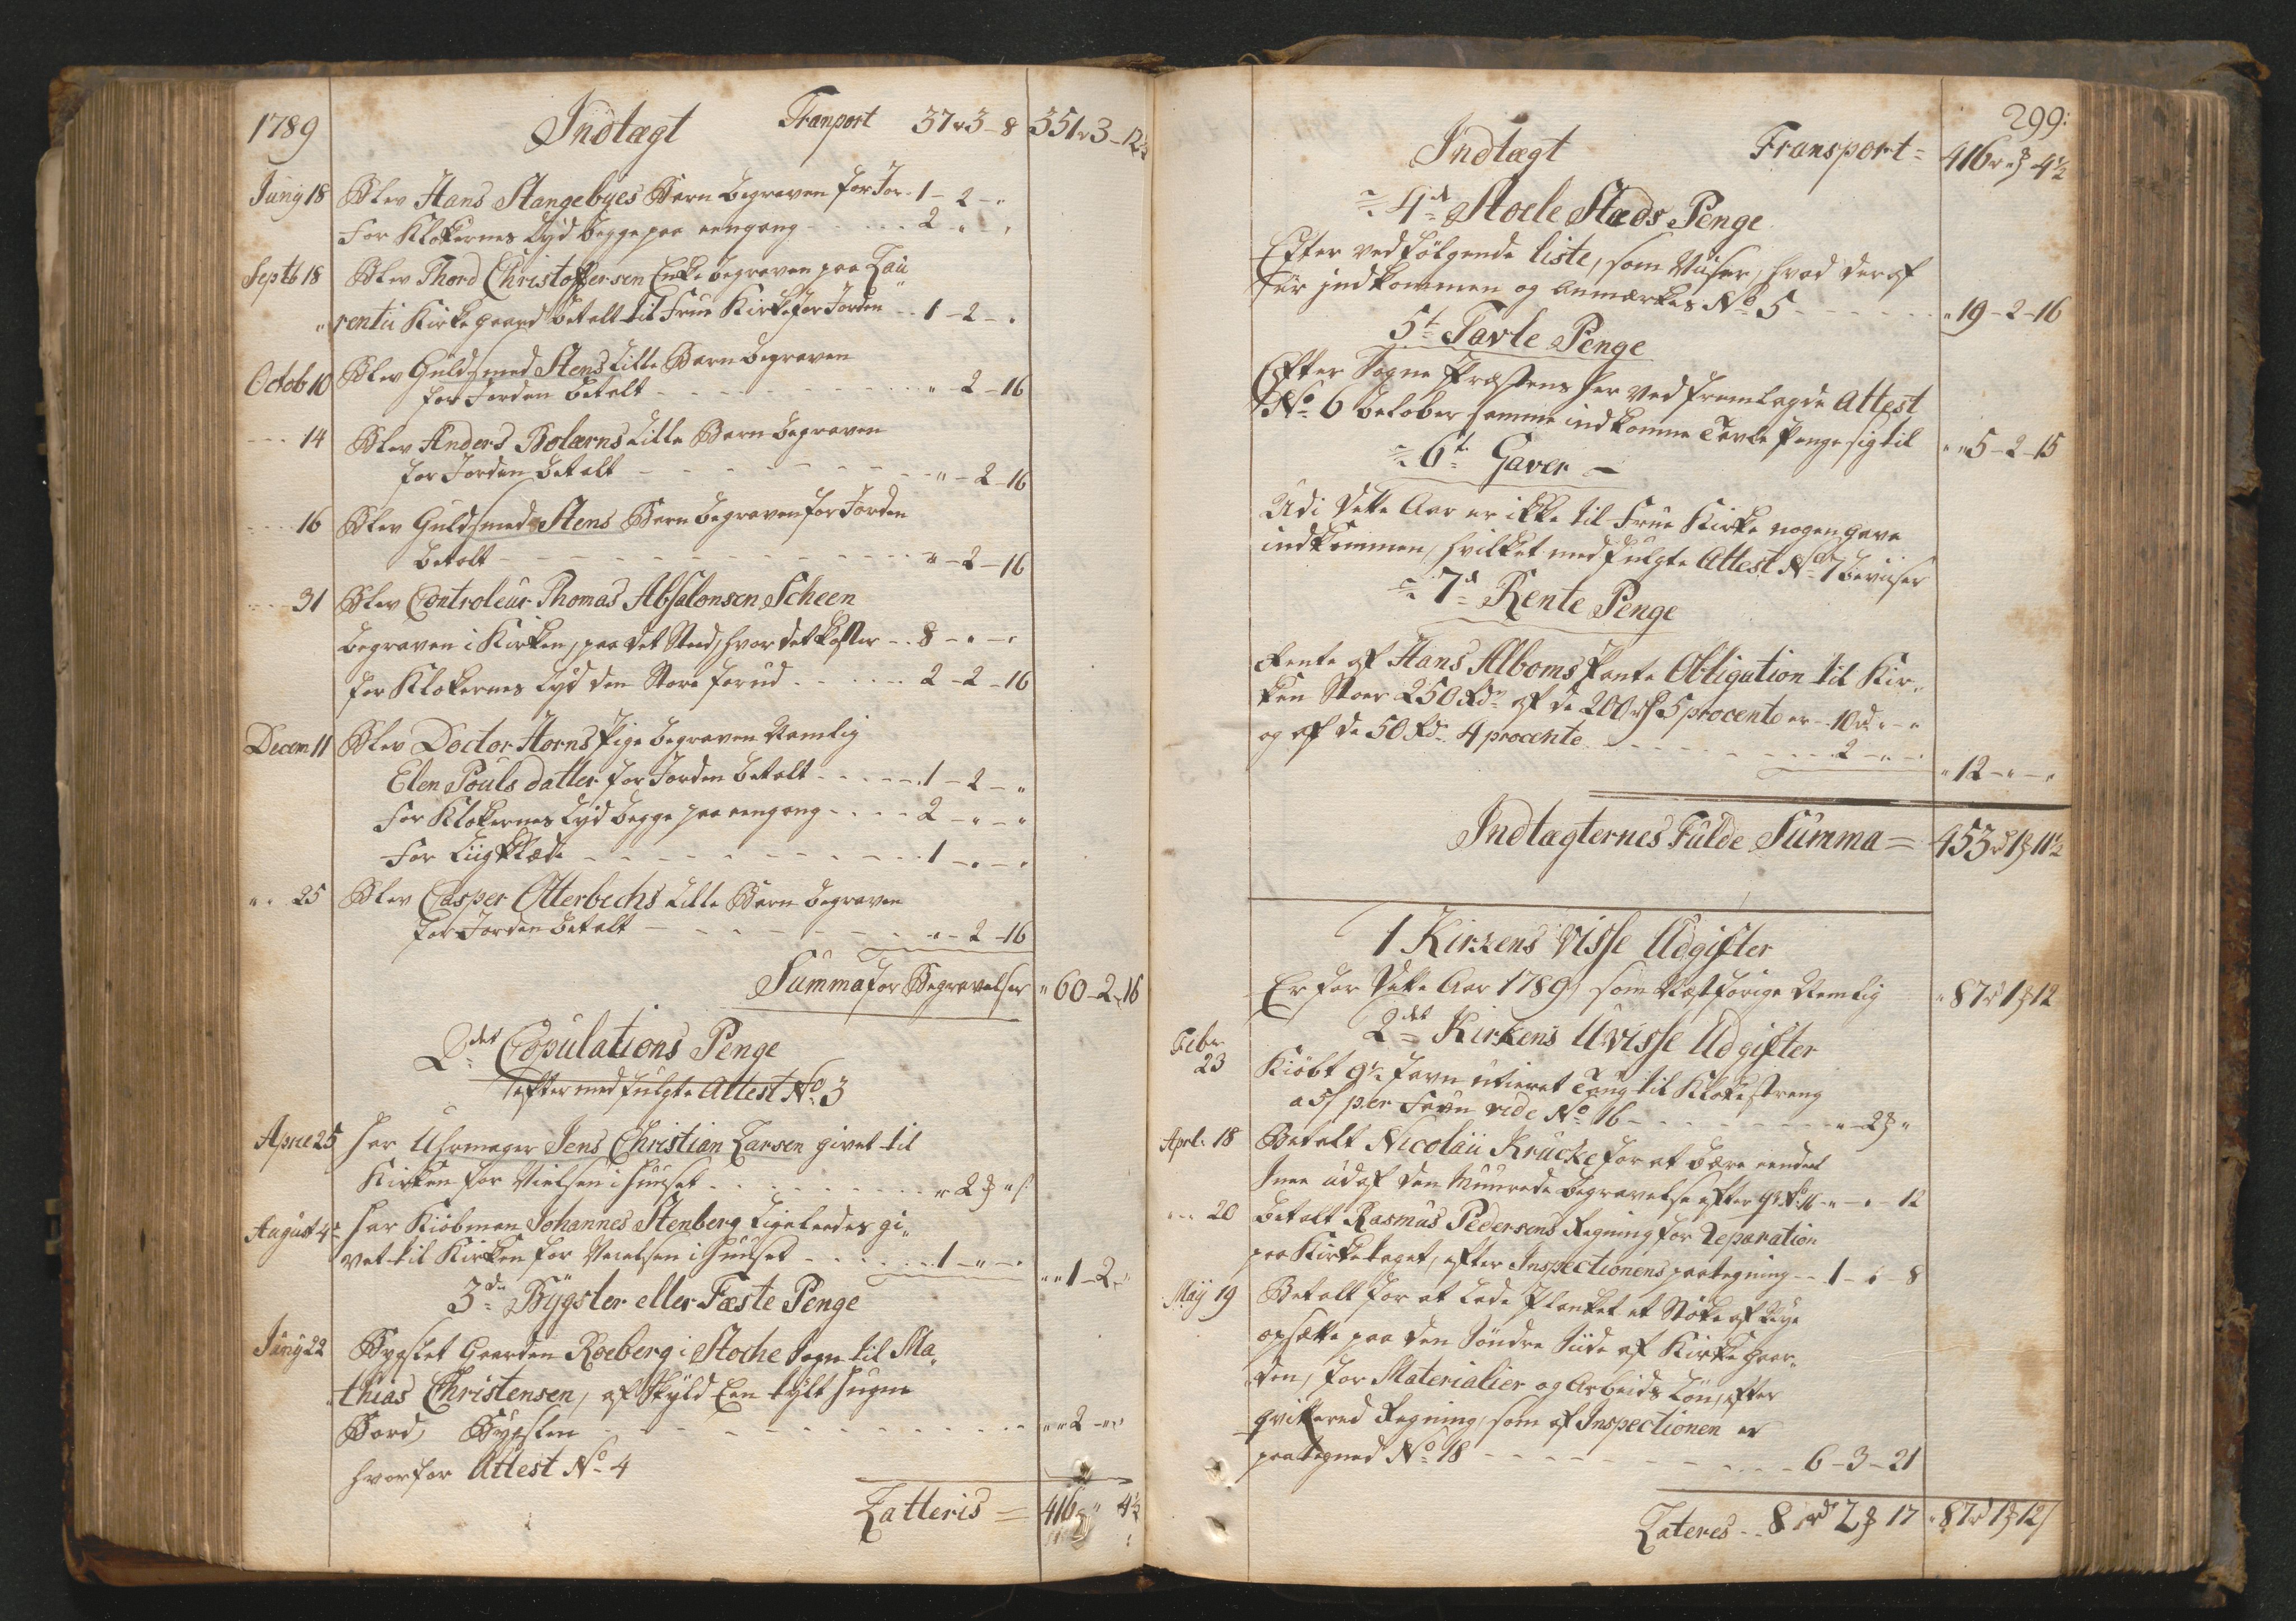 1789 Indtægt Tranport 37 r 3 - 8 351 r 3 - 12½
Juny 18 Blev Hans Stangebyes Barn begraven for Jor. 1 - 2 - "
For Klokernes Lyd begge paa eengang - - - - - 2 " "
Septb 18 Blev Thord Christoffersen Enke begraven paa Lau
"rentii Kirkegaard betalt til Frue Kirke for Jorden - - 1 - 2 - "
Octob 10 Blev Guldsmed Stens Lille Barn begraven
for Jorden betalt - - - - - " - 2 - 16
- - - 14 Blev Anders Bolærns Lille Barn begraven
for Jorden betalt - - - - - " - 2 - 16
- - - 16 Blev Guldsmed Stens Barn begraven for Jorden
betalt - - - - - " - 2 - 16
- - - 31 Blev Controleur Thomas Absalonsen Scheen
begraven i Kirken, paa det Sted, hvor det koster - - 8 - " - "
for Klokernes Lyd den Store forud - - - - - 2 - 2 - 16
Decem 11 Blev Doctor Horns Pige begraven Nemlig
Elen Pouls datter for Jorden betalt - - - - - 1 - 2 - "
For Klokernes Lyd begge paa eengang - - - - 2 - " - "
For Liigklæde - - - - - 1 - " - "
" " 25 Blev Casper Otterbechs Lille Barn begraven
for Jorden betalt - - - - - " - 2 - 16
Summa for Begravelser " 60 - 2 - 16
2det Copulations Penge
efter medfulgte Attest No 3
Aprie 25 har Uhrmager Jens Christian Larsen givet til
Kirken for Vielsen i Huuset - - - - - " 2 " "
August 4 har Kiöbman Johannes Stenberg Ligeleedes gi"
vet til Kirken for Vielsen i Huuset - - - - - 1 - " - " " " 1 - 2 - "
3die Bygsler eller Fæste Penge
Juny 22 Bygslet Gaarden Roeberg i Stoche Sogn til Ma"
"thias Christensen, af Skyld Een tylt hugne
Bord, Bygslen - - - - - " " 2 - " "
hvorfor Attest No 4
Latteris = 416 " 4½
299
Indtægt Transport = 416 r " 4½
4de Stoele Stæds Penge
Efter vedfölgende liste, som Viiser, hvad deraf
er indkommen og anmærkes No 5 - - - - - " 19 - 2 - 16
5te Tavle Penge
Efter Sogne Præstens her ved fremlagde Attest
No 6 beløber samme indkomne Tavle Penge sig til " " 5 - 2 - 15
6te Gaver -
Udi dette Aar er ikke til Frue Kirke nogen gave
indkommen, hvilket medfulgte Attest No 7 beviiser
7de Rente Penge
Rente af Hans Alboms Pante Obligation til Kir"
ken Stoer 250 Rdr af de 200 rd 5 procento er - 10 rd " - "
og af de 50 Rd. 4 procento - - - - - 2 - " - " " 12 - " - "
Indtægternes Fulde Summa = 453 rd 1 11½
1 Kirkens visse Udgifter
Er for dette Aar 1789 som Næstforige Nemlig " 87 rd 1 12
2det Kirkens Uvisse Udgifter
Febr 23 Kiöbt 9½ favn utieret Toug til Klokestreng
a 5 s per Favn vide No 16 - - - - - " - 2 "
Aprl. 18 Betalt Nicolaii Krucke for at bære eendeel
Snee ud af den Muurede begravelse efter - " - " - 12
- - - 20 betalt Rasmus Pedersens Regning for Reparation
paa Kirketaget, efter Inspectionens paategning - - 1 - " - 8
Maij 19 Betalt for at lade Planket et Støke af Nye
opsætte paa den Söndre Siide af Kirke gaar"
den, for Materialier og Arbeids Lön, efter
qvitered Regning, som af Inspectionen er
paategned No 18 - - - - - 6 - 3 - 21
Lateres - - 8 rd 2 17 " 87 rd 1 12 s